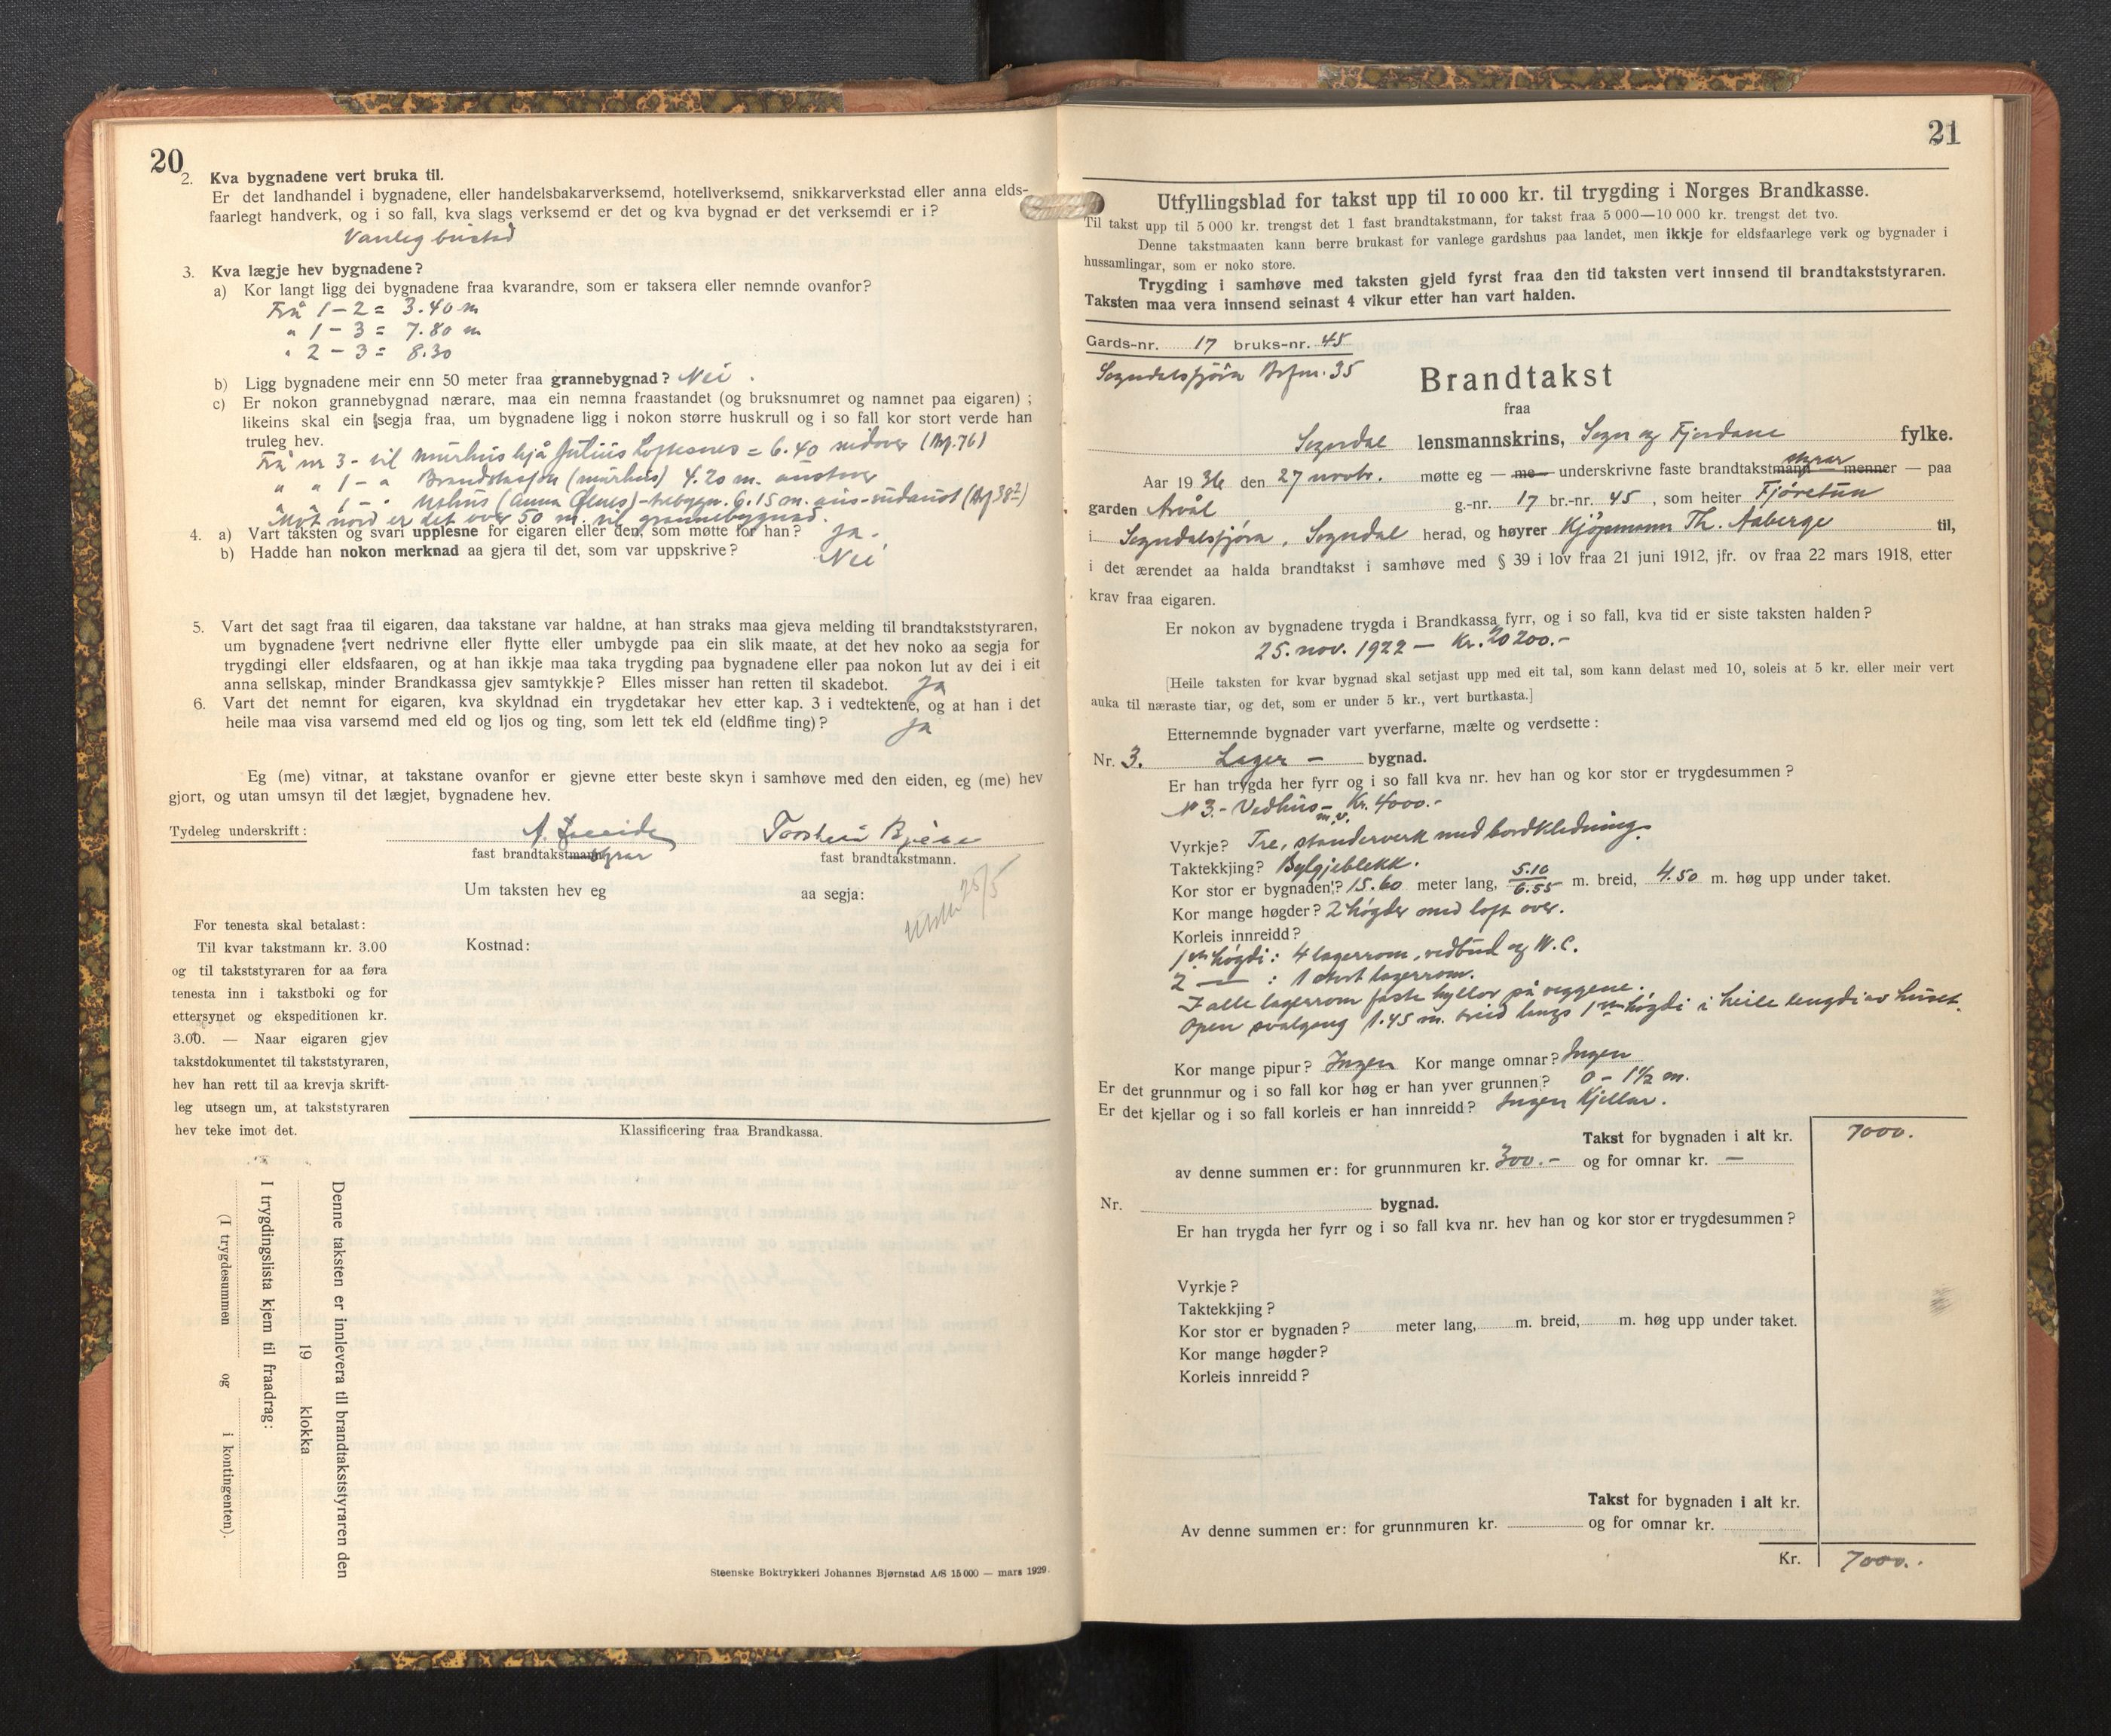 20
2. Kva bygnadene vert bruka til.
Er det landhandel i bygnadene, eller handelsbakarverksemd, hotellverksemd, snikkarverkstad eller anna elds-
faarlegt handverk, og i so fall, kva slags verksemd er det og kva bygnad er det verksemdi er i?
Vanleg bustad
3. Kva lægje hev bygnadene?
a) Kor langt ligg dei bygnadene fraa kvarandre, som er taksera eller nemnde ovanfor?
Frå 1 – 2 = 3.40 m
" 1 – 3 = 7.80 m
" 2 – 3 = 8.30
b) Ligg bygnadene meir enn 50 meter fraa grannebygnad? Nei.
c) Er nokon grannebygnad nærare, maa ein nemna fraastandet (og bruksnumret og namnet paa eigaren);
likeins skal ein segja fraa, um bygnadene ligg i nokon større huskrull og i so fall kor stort verde han
truleg hev.
Frå nr 3 - til murhus hjå Julius = 6.40 nedover (Brf. 76)
" " 1 - " Brandstasjon (murhus) 4.20 m. austover
" " 1 - " (Anna Ølnes) - trebygn. 6.15 m. aus-sudaust (Brf 38²)
Mot nord er det over 50 m. til grannebygnad.
4. a) Vart taksten og svari upplesne for eigaren eller den, som møtte for han? Ja.
b) Hadde han nokon merknad aa gjera til det, som var uppskrive? Nei
5. Vart det sagt fraa til eigaren, daa takstane var haldne, at han straks maa gjeva melding til brandtakststyraren,
um bygnadene vert nedrivne eller flytte eller umbygde paa ein slik maate, at det hev noko aa segja for
trygdingi eller eldsfaaren, og at han ikkje maa taka trygding paa bygnadene eller paa nokon lut av dei i eit
anna sellskap, minder Brandkassa gjev samtykkje? Elles misser han retten til skadebot. Ja
6. Vart det nemnt for eigaren, kva skyldnad ein trygdetakar hev etter kap. 3 i vedtektene, og at han i det
heile maa visa varsemd med eld og ljos og ting, som lett tek eld (eldfime ting)? Ja
Eg (me) vitnar, at takstane ovanfor er gjevne etter beste skyn i samhøve med den eiden, eg (me) hev
gjort, og utan umsyn til det lægjet, bygnadene hev.
Tydeleg underskrift:
fast brandtakstmann styrar
fast brandtakstmann.
Um taksten hev eg aa segja:
25/5
For tenesta skal betalast:
Til kvar takstmann kr. 3.00
og til takststyraren for aa føra
tenesta inn i takstboki og for
ettersynet og ekspeditionen kr.
3.00. — Naar eigaren gjev
takstdokumentet til takststyraren,
hev han rett til aa krevja skrift-
leg utsegn um, at takststyraren
hev teke imot det.
Kostnad:
Klassificering fraa Brandkassa.
Denne taksten er innlevera til brandtakststyraren den
19 klokka
I trygdingslista kjem til fraadrag:
(I trygdesummen og i kontingenten).
Steenske Boktrykkeri Johannes Bjørnstad A/S 15 000 — mars 1929.
21
Utfyllingsblad for takst upp til 10 000 kr. til trygding i Norges Brandkasse.
Til takst upp til 5 000 kr. trengst det 1 fast brandtakstmann, for takst fraa 5 000—10 000 kr. trengst det tvo.
Denne takstmaaten kann berre brukast for vanlege gardshus paa landet, men ikkje for eldsfaarlege verk og bygnader i
hussamlingar, som er noko store.
Trygding i samhøve med taksten gjeld fyrst fraa den tid taksten vert innsend til brandtakststyraren.
Taksten maa vera innsend seinast 4 vikur etter han vart halden.
Gards-nr. 17 bruks-nr. 45
Sogndalsfjøra Brfnr. 35
Brandtakst
fraa
Sogndal lensmannskrins, Sogn og Fjordane fylke.
Aar 1936 den 27 novbr. møtte eg — me — underskrivne faste brandtakstmann styrar — menner — paa
garden Arøl g.-nr. 17 br.-nr. 45, som heiter Fjøretun
i Sogndalsfjøra, Sogndal herad, og høyrer Kjøpmann Th. Aaberge til,
i det ærendet aa halda brandtakst i samhøve med § 39 i lov fraa 21 juni 1912, jfr. ov fraa 22 mars 1918, etter
krav fraa eigaren.
Er nokon av bygnadene trygda i Brandkassa fyrr, og i so fall, kva tid er siste taksten halden?
25. nov. 1922 — Kr. 20200.-
[Heile taksten for kvar bygnad skal setjast upp med eit tal, som kann delast med 10, soleis at 5 kr. eller meir vert
auka til næraste tiar, og det, som er under 5 kr., vert burtkasta.]
Etternemnde bygnader vart yverfarne, mælte og verdsette:
Nr. 3. Lager – bygnad.
Er han trygda her fyrr og i so fall kva nr. hev han og kor stor er trygdesummen?
Nr 3.- Vedhus m.v. – Kr. 4000.-
Vyrkje? Tre, standerverk med bordkledning.
Taktekkjing? Bylgjeblekk.
Kor stor er bygnaden? 15.60 meter lang, 5.10/6.55 m. breid, 4.50 m. høg upp under taket.
Kor mange høgder? 2 høgder med loft over.
Korleis innreidd?
1ste høgdi: 4 lagerrom, vedbud og W.C.
2 — : 1 stort lagerrom.
I alle lagerrom faste hyllor på veggene.
Open svalgang 1.45 m. breid langs 1ste høgdi i heile lengdi av huset.
Kor mange pipur? Ingen Kor mange omnar? Ingen
Er det grunnmur og i so fall kor høg er han yver grunnen? 0 – 1½ m.
Er det kjellar og i so fall korleis er han innreidd? Ingen Kjellar.
Takst for bygnaden i alt kr. 7000.
av denne summen er: for grunnmuren kr. 300.- og for omnar kr. —
Nr. bygnad.
Er han trygda her fyrr og i so fall kva nr. hev han og kor stor er trygdesummen?
Vyrkje?
Taktekkjing?
Kor stor er bygnaden? meter lang, m. breid, m. høg upp under taket.
Kor mange høgder?
Korleis innreidd?
Takst for bygnaden i alt kr.
Av denne summen er: for grunnmuren kr. og for omnar kr.
Kr. 7000.